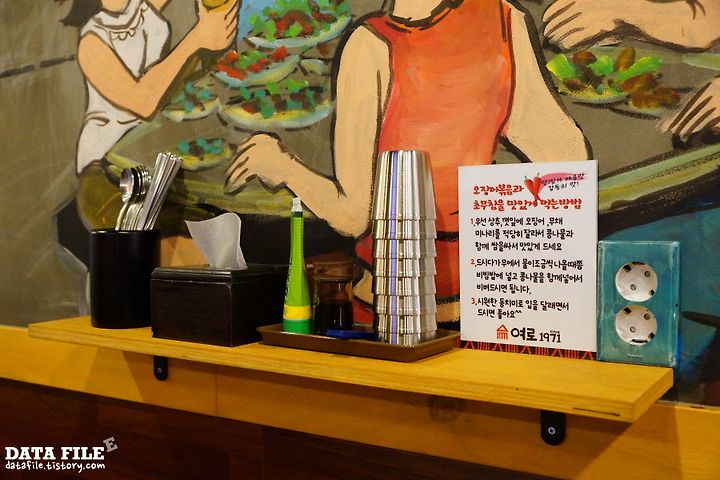 오징어볶음과
초무침을 맛있게 먹는방법
1. 우선 상추, 깻잎에 오징어, 무채
미나리를 적당히 잘라서 콩나물과
함께 쌈을싸서 맛있게 드세요
2. 드시다가 무에서 물이조금씩 나올때쯤
비빔밥에 넣고 콩나물을 함께넣어서
비벼드시면 됩니다.
3. 시원한 동치미로 입을 달래면서
드시면 좋아요^^
since
여로 1971
DATA FILE E
datafile.tistory.com